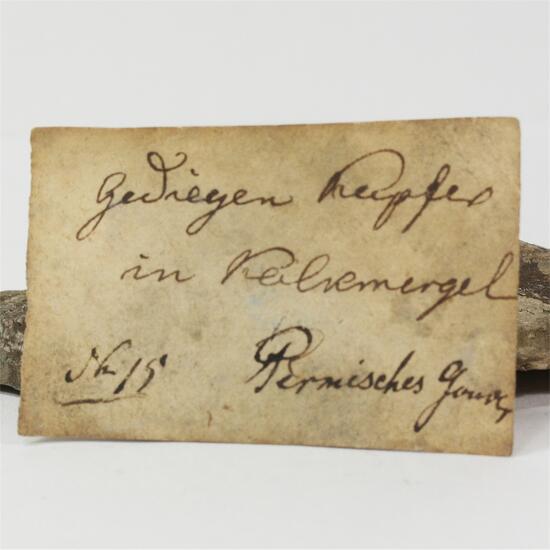 Gediegen Kupfer
in Kalkmergel
No 15 Permisches Gouv